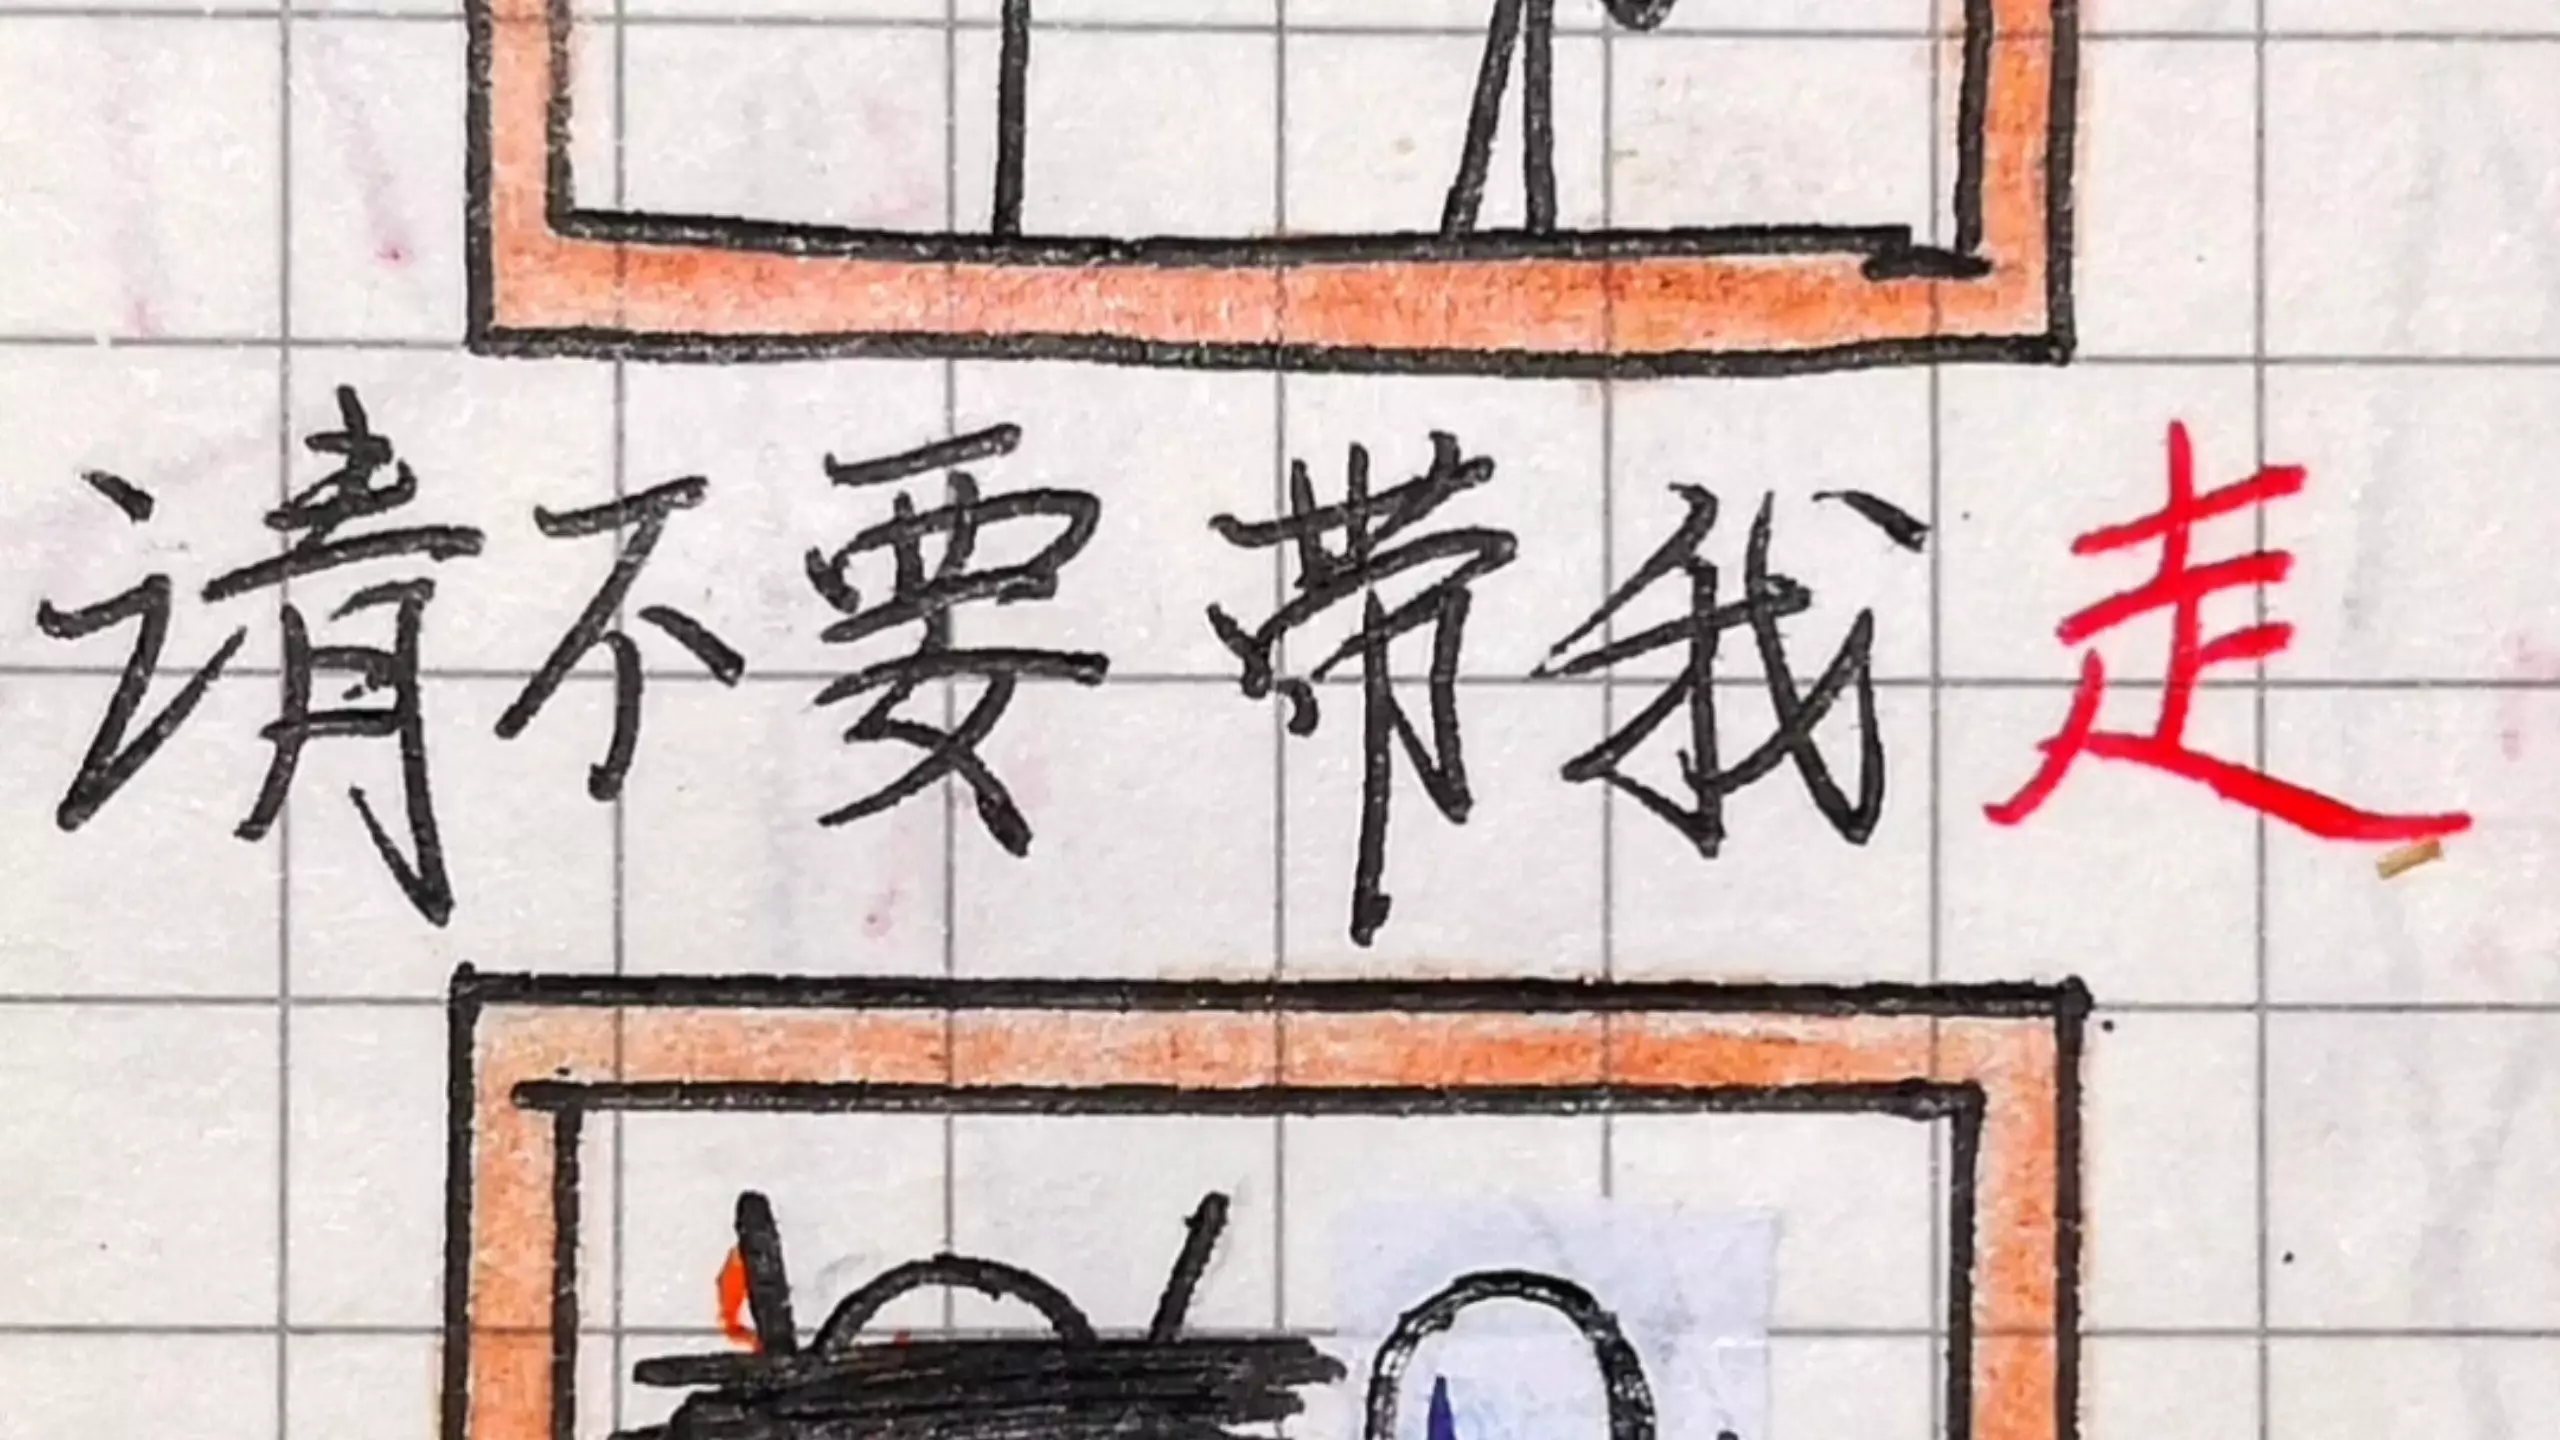 请不要带我走